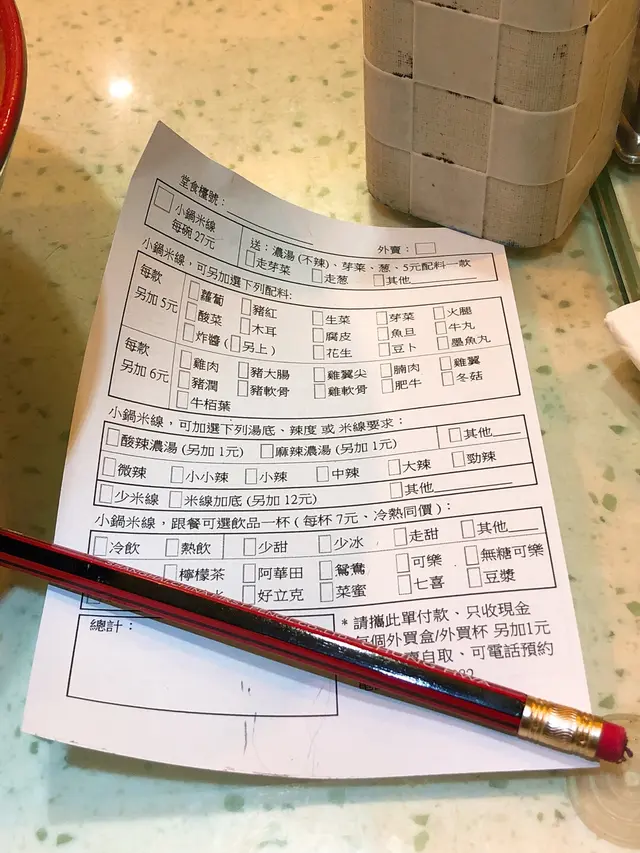 堂食檯號：
□小鍋米線 每碗27元
送：濃湯 (不辣)、芽菜、葱、5元配料一款 外賣：□
□走芽菜 □走葱 □其他
小鍋米線，可另加選下列配料:
每款 另加 5元
□蘿蔔 □豬紅 □生菜 □芽菜 □火腿
□酸菜 □木耳 □腐皮 □魚旦 □牛丸
□炸醬 (□另上) □花生 □豆卜 □墨魚丸
每款 另加 6元
□雞肉 □豬大腸 □雞翼尖 □腩肉 □雞翼
□豬潤 □豬軟骨 □雞軟骨 □肥牛 □冬菇
□牛栢葉
小鍋米線，可加選下列湯底、辣度 或 米線要求：
□酸辣濃湯 (另加 1元) □麻辣濃湯 (另加 1元) □其他
□微辣 □小小辣 □小辣 □中辣 □大辣 □勁辣
□少米線 □米線加底 (另加 12元) □其他
小鍋米線，跟餐可選飲品一杯 ( 每杯 7元、冷熱同價 )：
□冷飲 □熱飲 □少甜 □少冰 □走甜 □其他
□檸檬茶 □阿華田 □鴛鴦 □可樂 □無糖可樂
□好立克 □菜蜜 □七喜 □豆漿
總計：
* 請攜此單付款、只收現金
每個外買盒/外買杯 另加1元
自取、可電話預約